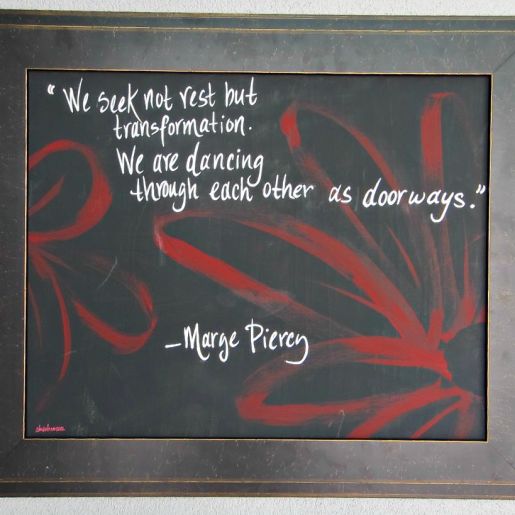 "We seek not rest but
transformation.
We are dancing
through each other as doorways."
—Marge Piercy